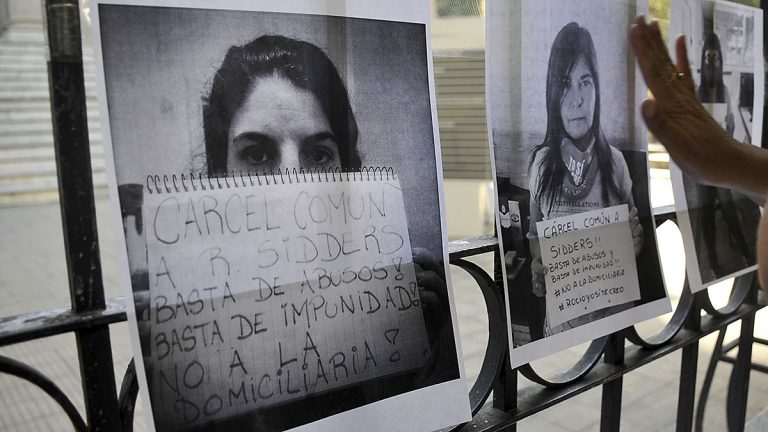 CÁRCEL COMÚN
A R. SIDDERS
BASTA DE ABUSOS!
BASTA DE IMPUNIDAD!
NO A LA
DOMICILIARIA!
CÁRCEL COMÚN A
SIDDERS!!
BASTA DE ABUSOS Y
BASTA DE IMPUNIDAD!!
#NO A LA DOMICILIARIA
#ROCIOYOSITECREO